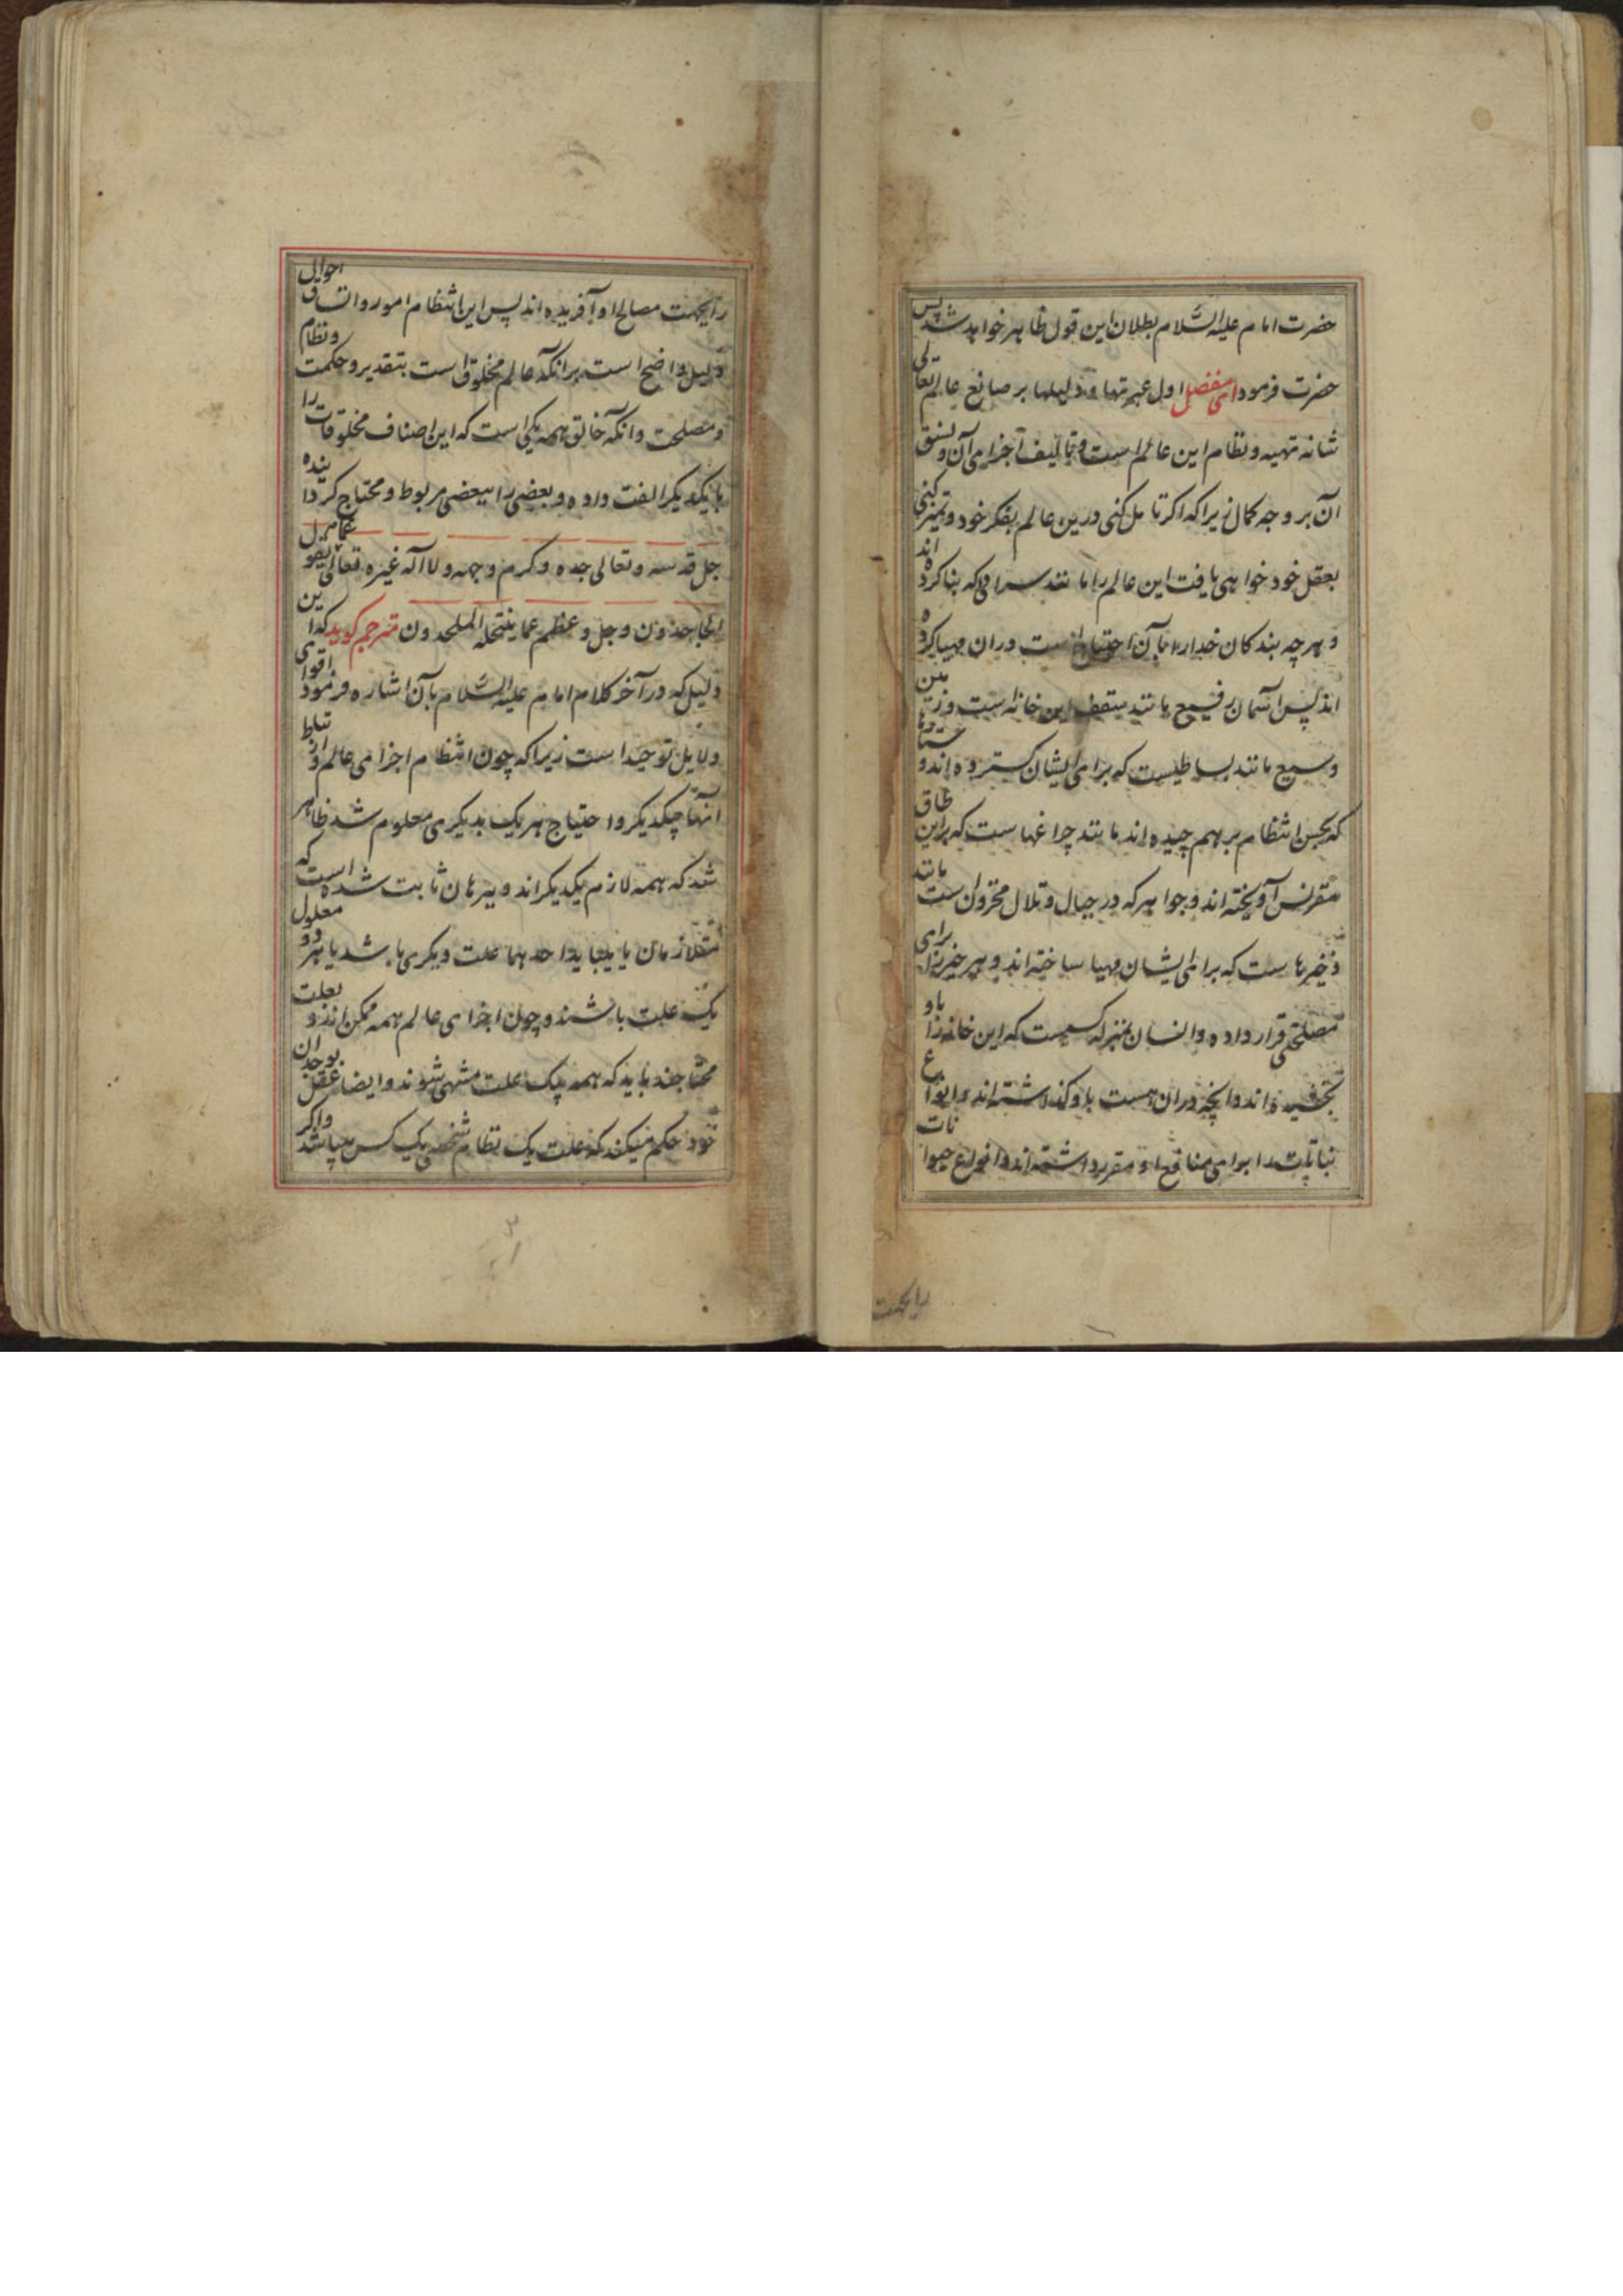 حضرت امام علیه السّلام بطلان این قول ظاهر خواهد شد پس
حضرت فرمود ای مفضل اول عبرتها و دلیلها بر صانع عالم تعالی
شانه تهیه و نظام این عالم است و تالیف اجزای آن و نسق
آن بر وجه کمال زیرا که اکر تامل کنی درین عالم بفکر خود و تمیز کنی
بعقل خود خواهی یافت این عالم را مانند سرائی که بنا کرده اند
و هر چه بندکان خدا را بآن احتیاج است دران مهیا کرده
اند پس آسمان رفیع مانند سقف این خانه است و زمین
وسیع مانند بساطیست که برای ایشان کسترده اند و ستارها
که بحسن انتظام بر بهم چیده اند مانند چراغهاست که براین طاق
مقرنس آویخته اند و جواهر که در جبال و تلال مخزون است مانند
ذخیرهاست که برای ایشان مهیا ساخته اند و هر چیز را برای
مصلحتی قرار داده و انسان بمنزله کسیست که این خانه را باو
بخشیده اند و آنچه دران هست باو کذاشته اند و انواع
نباتات را برای منافع او مقرر داشته اند و انواع حیوانات
رابجهت
رابجهت مصالح او آفریده اند پس این انتظام امور و اتساق احوال
دلیل واضح است برانکه عالم مخلوق است بتقدیر و حکمت و نظام
و مصلحت و آنکه خالق همه یکی است که این اصناف مخلوقات را
بایکدیکر الفت داده و بعضی را ببعضی مربوط و محتاج کرداینده
جل قدسه و تعالی جده و کرم وجهه و لا اله غیره تعالی عما یقول
الجاحدون و جل و عظم عما ینتحله الملحدون مترجم کوید که این
دلیل که در آخر کلام امام علیه السّلام بآن اشاره فرمود اقوای
دلایل توحید است زیرا که چون انتظام اجزای عالم و ارتباط
انها بیکدیکر و احتیاج هر یک بدیکری معلوم شد ظاهر
شد که همه لازم یکدیکراند و ببرهان ثابت شده است که
متلازمان یا میباید احدهما علت دیکری باشد یا هر دو معلول
یک علت باشند و چون اجزای عالم همه ممکن اند و بعلت
محتاجند باید که همه بیک علت منتهی شوند و ایضا عقل بوجدان
خود حکم میکند که علت یک نظام شخصی یک کس میباشد و اکر